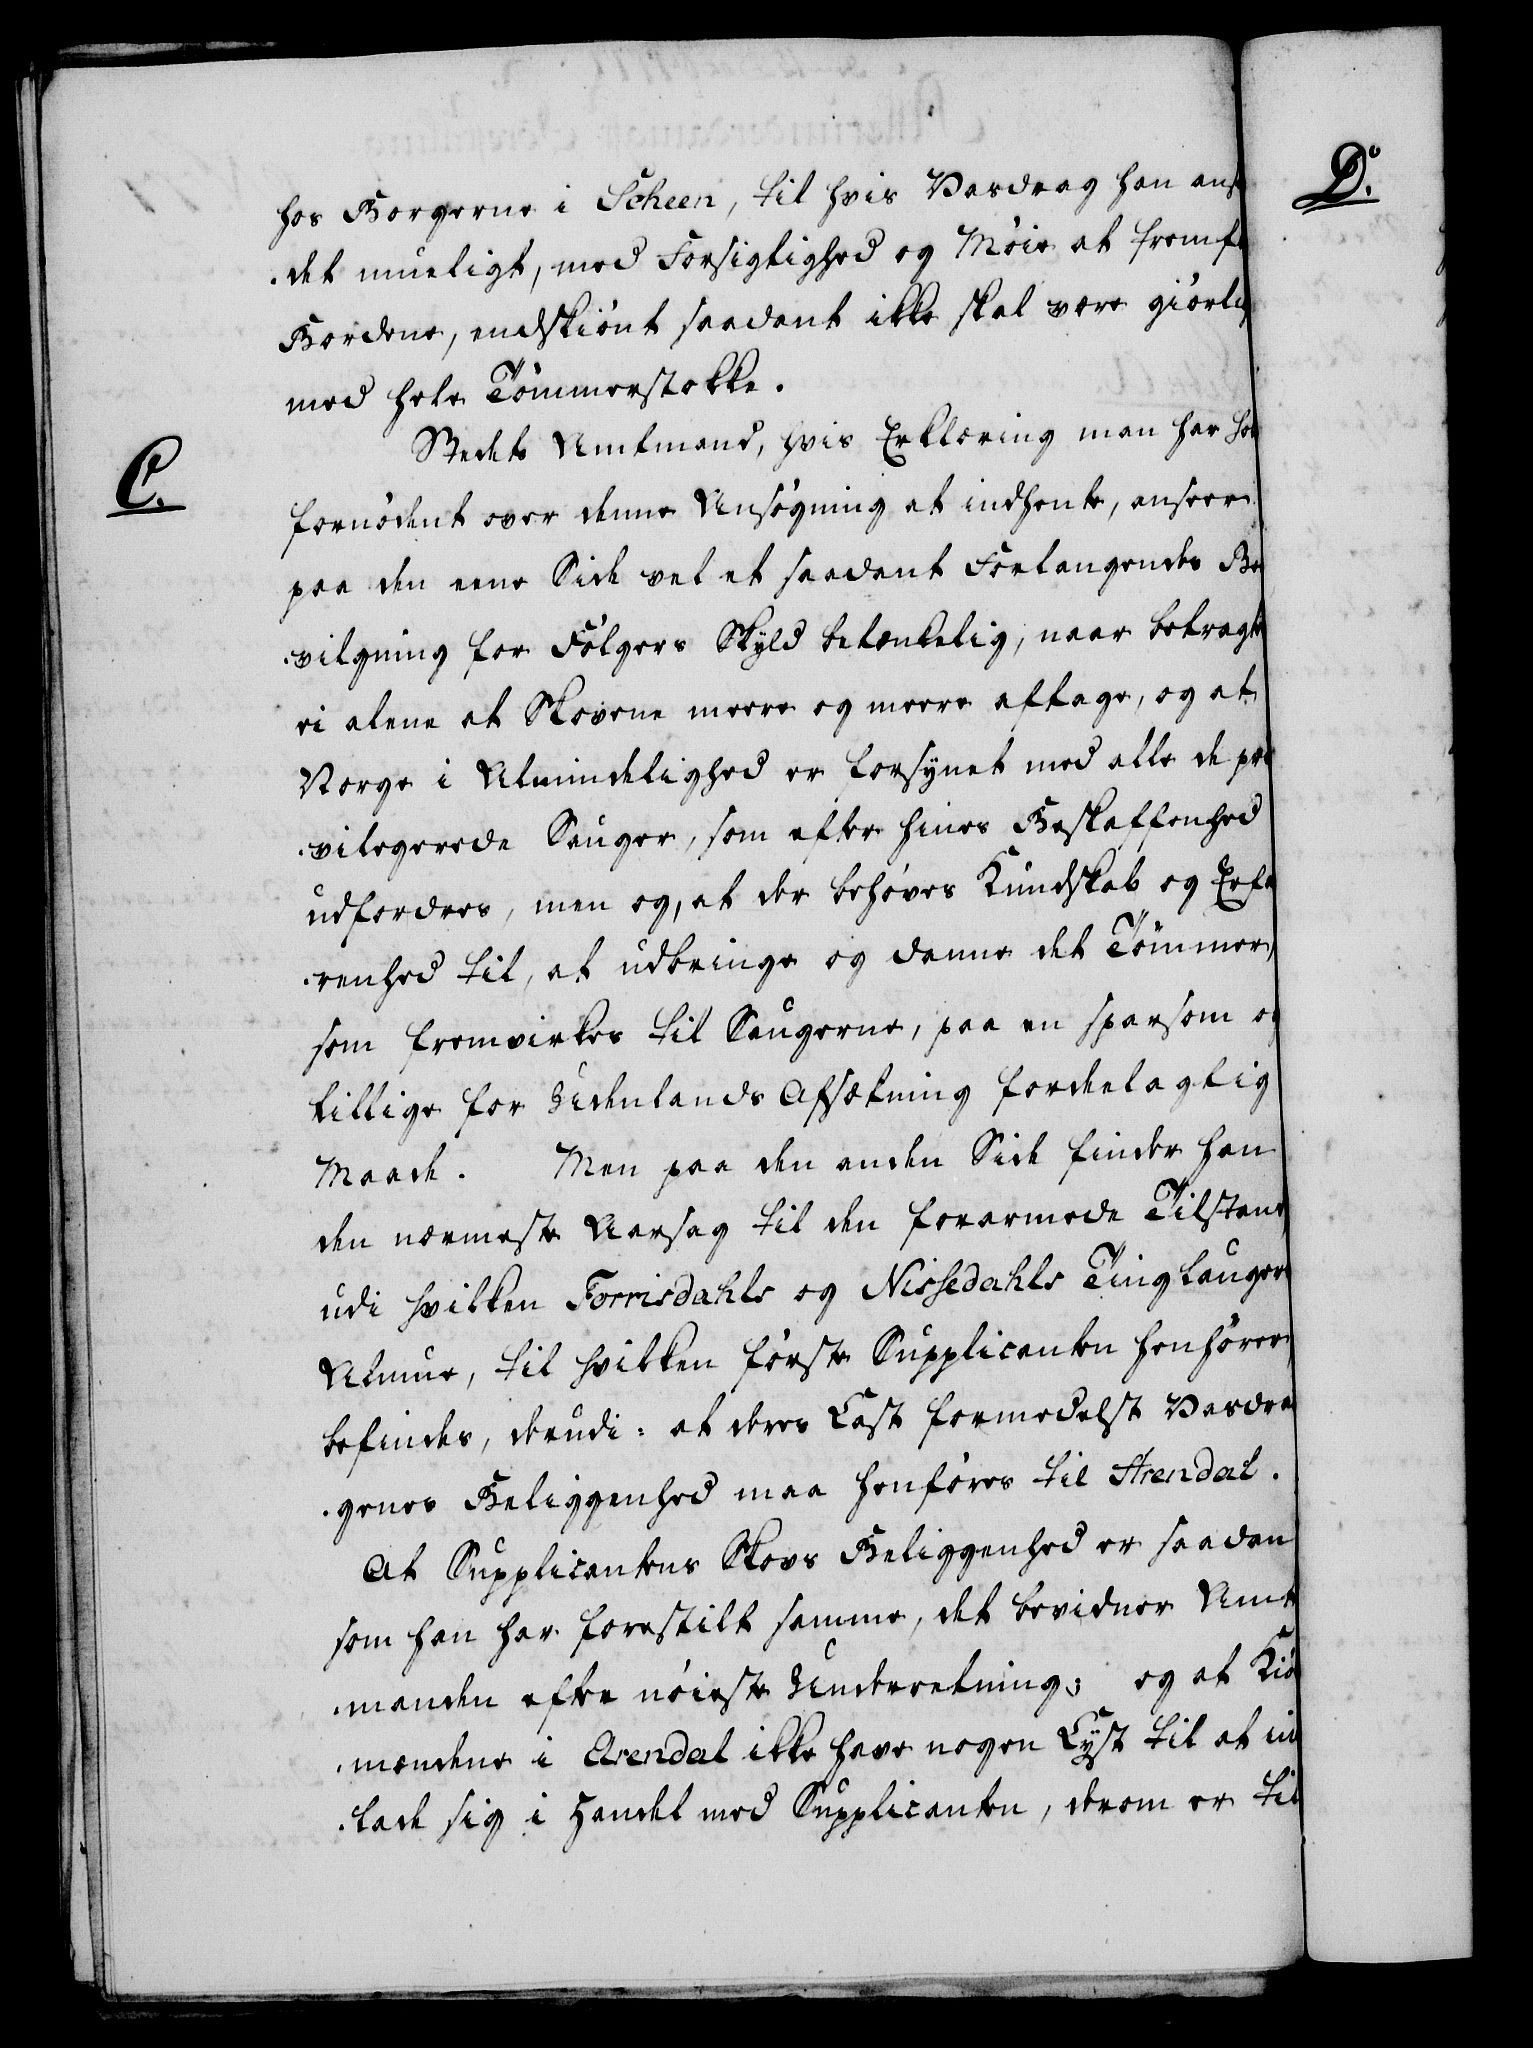 hos Borgerne i Scheen, til hvis Vasdrag han ans
det mueligt, med Forsigtighed og Møie at fremf
Bordene, endskiønt saadant ikke skal være giørlig
med hele Tømmerstokke.
C.
Stedets Amtmand, hvis Erklæring man har ho
fornødent over denne Ansøgning at indhente, anseer
paa den eene Side vel et saadant Forlangendes Be
vilgning for Følgers Skyld betænkelig, naar betragt
ei alene at Skovene meere og meere aftage, og at
Norge i Almindelighed er forsynet med alle de pri
vilegerede Sauger, som efter hines Beskaffenhed
udfordres, men og, at der behøves Kundskab og Erfa
renhed til, at udbringe og danne det Tømmer,
som fremvirkes til Saugerne, paa en sparsom og
tillige for Udenlands Afsætning fordeelagtig
Maade. Men paa den anden Side finder han
den nærmeste Aarsag til den forarmede Tilstand
udi hvilken Forrisdahls og Nissedahls Tinglauger
Almue, til hvilken første Supplicanten henhører,
befindes, derudi: at deres Last formedelst Vasdra
genes Beliggenhed maa henføres til Arendal.
At Supplicantens Skovs Beliggenhed er saadan
som han har forestilt samme, det bevidner Amt
manden efter nøieste Underretning; og at Kiø
mændene i Arendal ikke have nogen Lyst til at in
lade sig i Handel med Supplicanten, derom er til
D.